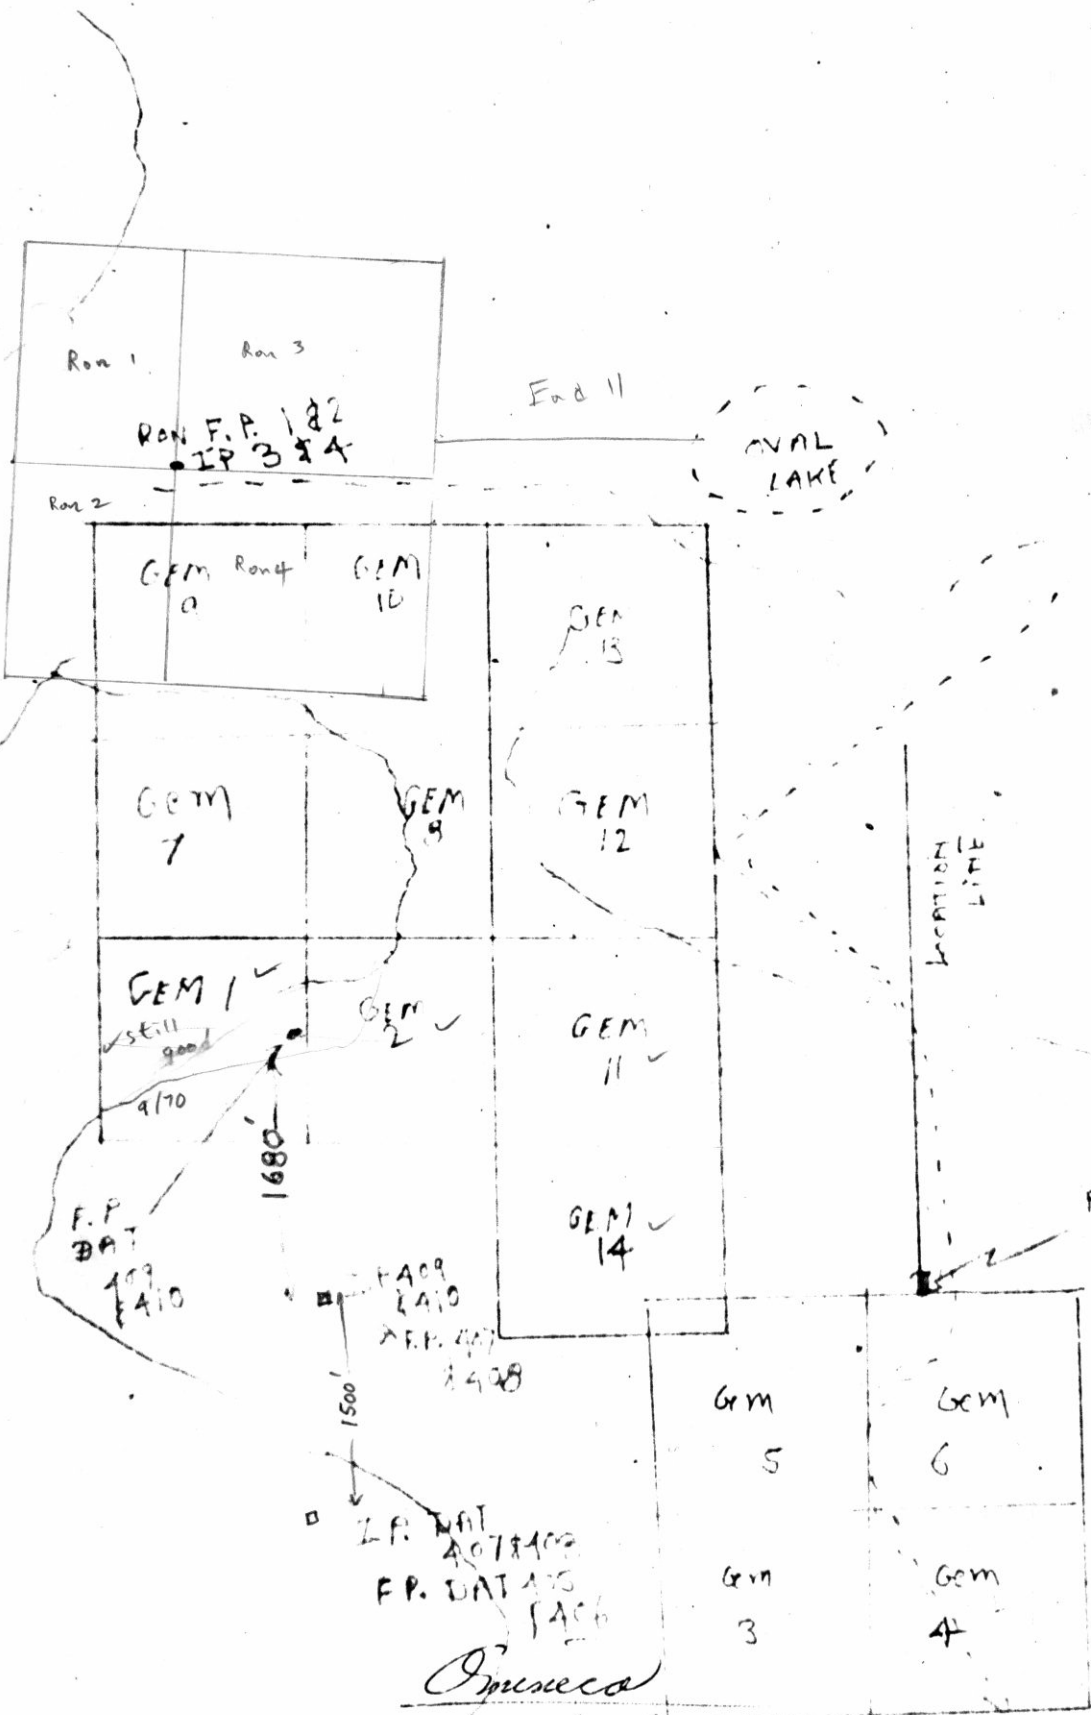 Ron 1
Ron 3
End 11
RON F.P. 1 & 2
IP 3 & 4
OVAL
LAKE
Ron 2
GEM
9
Ron 4
GEM
10
GEM
13
GEM
7
GEM
8
GEM
12
LOCATION
LINE
GEM 1 ✓
✓ still
good
9/70
GEM
2 ✓
GEM
11 ✓
1680'
F.P
DAT
409
& 410
GEM
14 ✓
409
& 410
F.P. 407
& 408
1500'
Gem
5
Gem
6
I.P. DAT
407 & 408
F.P. DAT 405
& 406
Gem
3
Gem
4
Omineca